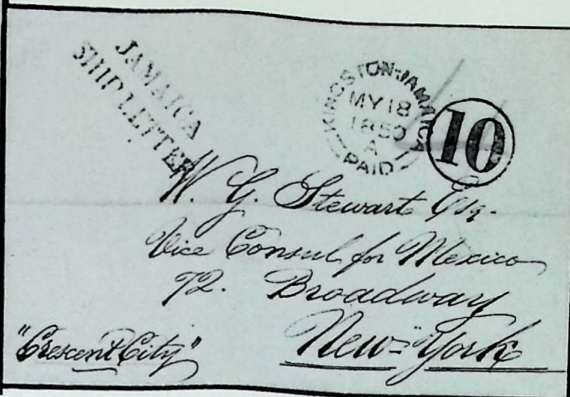 JAMAICA
SHIP LETTER
KINGSTON-JAMAICA
MY 18
1850
A
PAID
10
W. G. Stewart Esqr.
Vice Consul for Mexico
72. Broadway
New-York
"Crescent City"